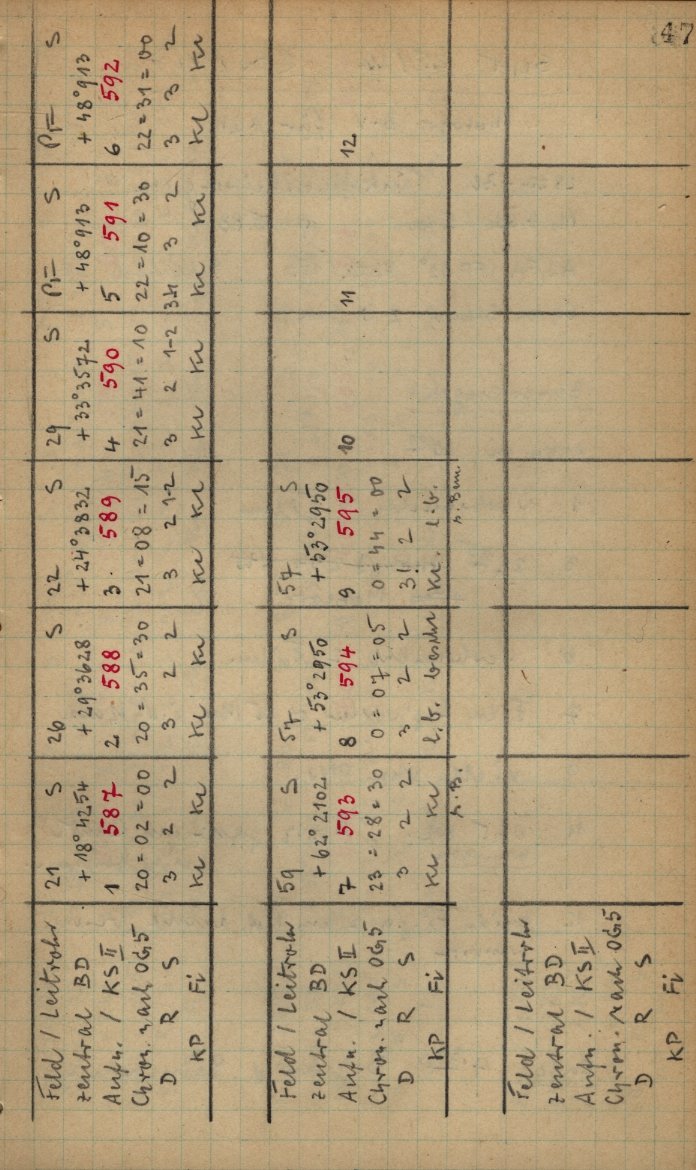 47
Feld / Leitrohr 21 S 26 S 22 S 29 S PF S PF S
zentral BD +18°4254 +29°3628 +24°3832 +33°3572 +48°913 +48°913
Aufn. / KS II 1 587 2 588 3. 589 4 590 5 591 6 592
Chron. nach OG5 20=02=00 20=35=30 21=08=15 21=41=10 22=10=30 22=31=00
D R S 3 2 2 3 2 2 3 2 1-2 3 2 1-2 3 2 3 3 2
KP Fi Kl Kl Kl Kl Kl Kl Kl Kl Kl Kl Kl Kl
Feld / Leitrohr 59 S 57 S 57 S
zentral BD +62°2102 +53°2950 +53°2950
Aufn. / KS II 7 593 8 594 9 595 10 11 12
Chron. nach OG5 23=28=30 0=07=05 0=44=00
D R S 3 2 2 3 2 2 3! 2 2
KP Fi Kl Kl Kl.
Feld / Leitrohr
zentral BD
Aufn. / KS II
Chron. nach OG5
D R S
KP Fi